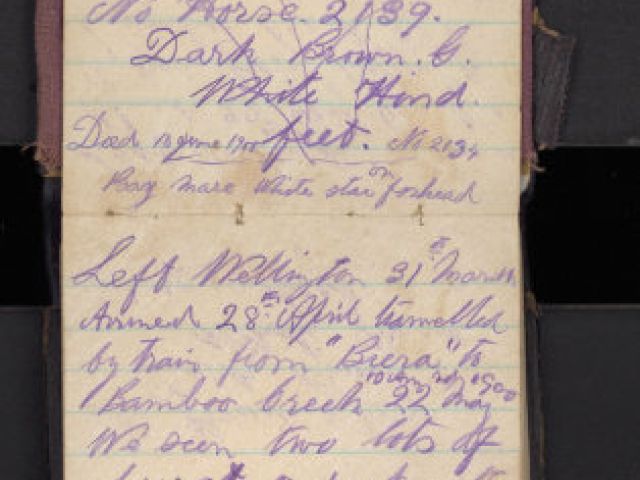 No Horse. 2139.
Dark Brown. G.
White Hind.
Died 18 June 1900 feet. No 2134
Bay mare White star on forhead
Left Wellington 31st March
Arrived 28th April travelled
by train from "Biera" to
Bamboo Creek 22 May 1900
We seen two lots of